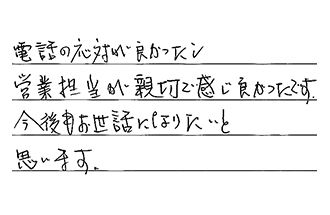 電話の応対が良かったし
営業担当が親切で感じ良かったです.
今後もお世話になりたいと
思います.